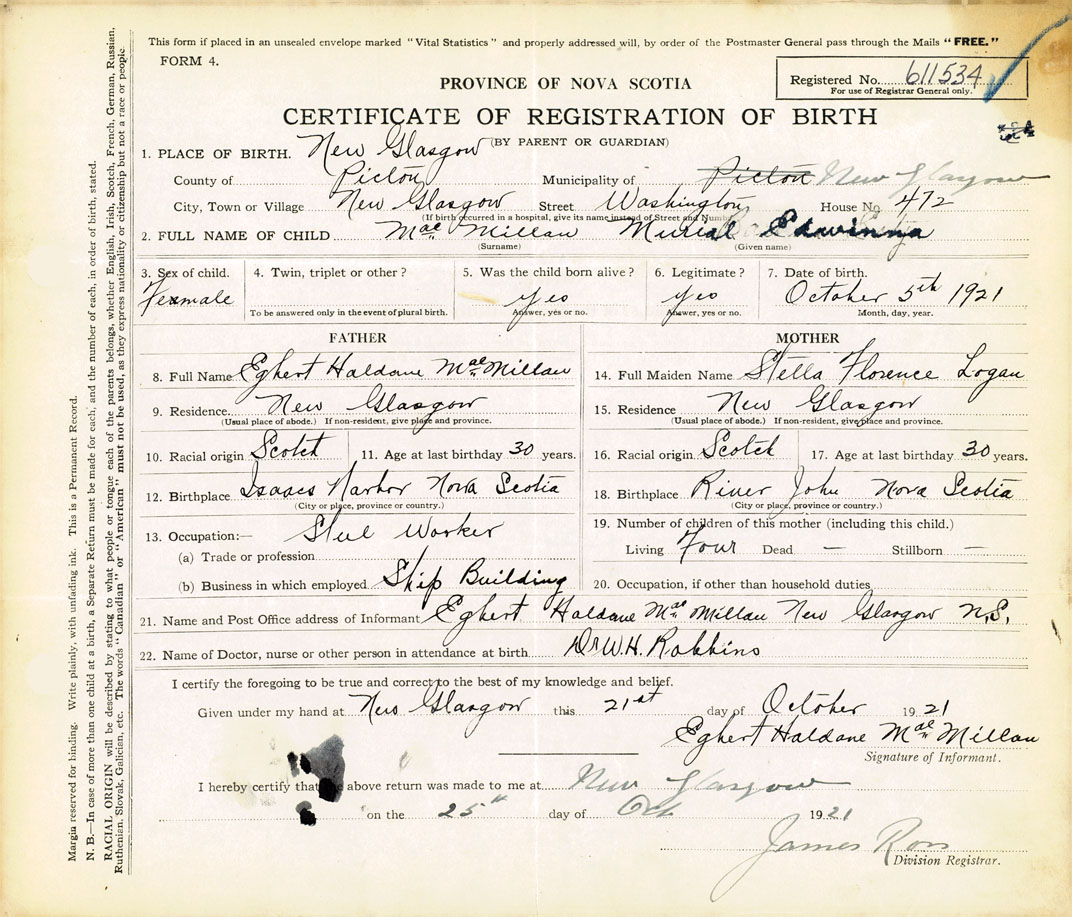 This form if placed in an unsealed envelope marked "Vital Statistics" and properly addressed will, by order of the Postmaster General pass through the Mails "FREE."
FORM 4.
Registered No. 611534
For use of Registrar General only.
PROVINCE OF NOVA SCOTIA
CERTIFICATE OF REGISTRATION OF BIRTH
(BY PARENT OR GUARDIAN)
1. PLACE OF BIRTH. New Glasgow
County of Pictou Municipality of Pictou New Glasgow
City, Town or Village New Glasgow Street Washington House No. 472
(If birth occurred in a hospital, give its name instead of Street and Number)
2. FULL NAME OF CHILD Mac Millan Muriel Edwinna
(Surname) (Given name)
3. Sex of child. Female
4. Twin, triplet or other?
To be answered only in the event of plural birth.
5. Was the child born alive? yes
Answer, yes or no.
6. Legitimate? yes
Answer, yes or no.
7. Date of birth. October 5th 1921
Month, day, year.
FATHER
8. Full Name Egbert Haldane MacMillan
9. Residence. New Glasgow
(Usual place of abode.) If non-resident, give place and province.
10. Racial origin Scotch 11. Age at last birthday 30 years.
12. Birthplace Isaacs Harbor Nova Scotia
(City or place, province or country.)
13. Occupation:— Steel Worker
(a) Trade or profession
(b) Business in which employed Ship Building
MOTHER
14. Full Maiden Name Stella Florence Logan
15. Residence New Glasgow
(Usual place of abode.) If non-resident, give place and province.
16. Racial origin Scotch 17. Age at last birthday 30 years.
18. Birthplace River John Nova Scotia
(City or place, province or country.)
19. Number of children of this mother (including this child.)
Living Four Dead — Stillborn —
20. Occupation, if other than household duties
21. Name and Post Office address of Informant Egbert Haldane Mac Millan New Glasgow N.S.
22. Name of Doctor, nurse or other person in attendance at birth Dr W.H. Robbins
I certify the foregoing to be true and correct to the best of my knowledge and belief.
Given under my hand at New Glasgow this 21st day of October 1921
Egbert Haldane Mac Millan
Signature of Informant.
I hereby certify that the above return was made to me at New Glasgow
on the 25" day of Oct 1921
James Ross
Division Registrar.
Margin reserved for binding. Write plainly, with unfading ink. This is a Permanent Record.
N. B.—In case of more than one child at a birth, a Separate Return must be made for each, and the number of each, in order of birth, stated.
RACIAL ORIGIN will be described by stating to what people or tongue each of the parents belongs, whether English, Irish, Scotch, French, German, Russian,
Ruthenian, Slovak, Galician, etc. The words "Canadian" or "American" must not be used, as they express nationality or citizenship but not a race or people.